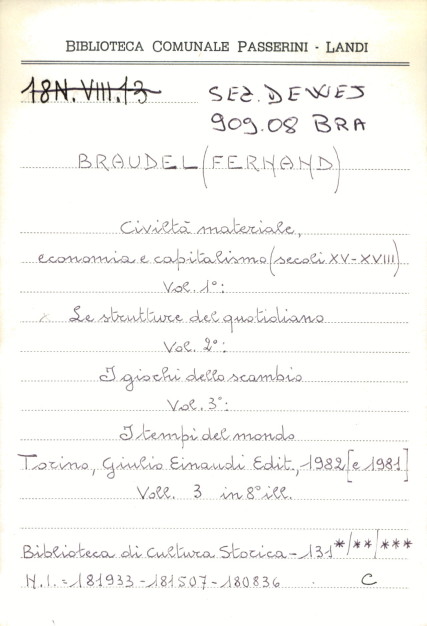 BIBLIOTECA COMUNALE PASSERINI - LANDI
18N.VIII.13 SEZ. DEWEJ
909.08 BRA
BRAUDEL (FERNAND)
Civiltà materiale,
economia e capitalismo (secoli XV-XVIII)
Vol. 1°:
Le strutture del quotidiano
Vol. 2°:
I giochi dello scambio
Vol. 3°:
I tempi del mondo
Torino, Giulio Einaudi Edit., 1982 [e 1981]
Voll. 3 in 8° ill.
Biblioteca di Cultura Storica - 131 */**/***
N.I. = 181933 - 181507 - 180836 C